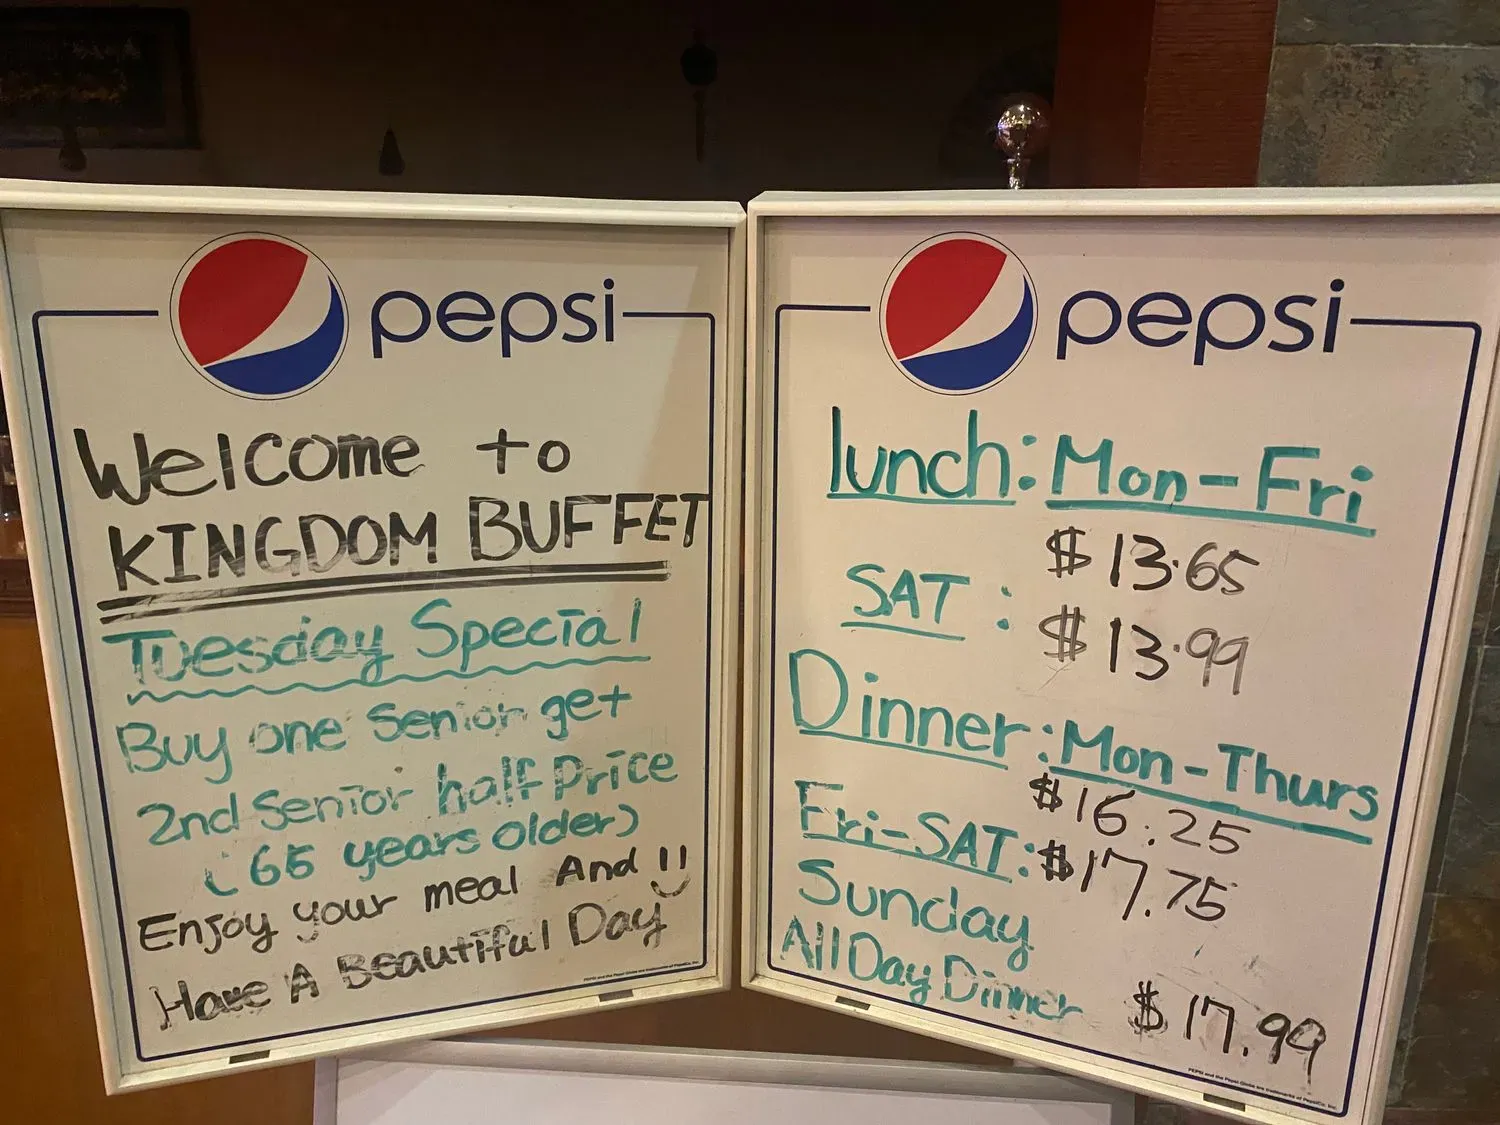 pepsi
Welcome to
KINGDOM BUFFET
Tuesday Special
Buy one Senior get
2nd Senior half Price
(65 years older)
Enjoy your meal And !!
Have A Beautiful Day
PEPSI and the Pepsi Globe are trademarks of PepsiCo, Inc.
pepsi
lunch: Mon-Fri
$13.65
SAT: $13.99
Dinner: Mon-Thurs
$16.25
Fri-SAT: $17.75
Sunday
All Day Dinner $17.99
PEPSI and the Pepsi Globe are trademarks of PepsiCo, Inc.